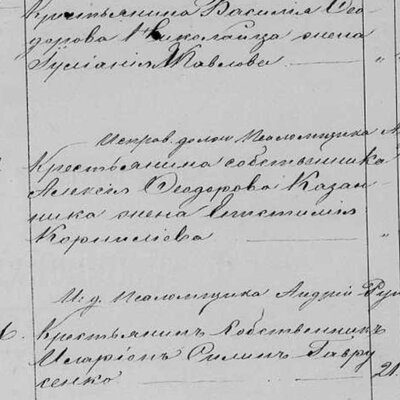 Крестьянина Василія Ѳео-
дорова Николайца жена
Іуліанія Павлова
Исправ. долж. Псаломщика А
Крестьянина собственника
Алексія Ѳеодорова Казан-
ника жена Епистимія
Корниліева "
И. д. Псаломщика Андрій Ру
Крестьянинъ Собственникъ
Иларіонъ Филипъ Гавру
сенко 21